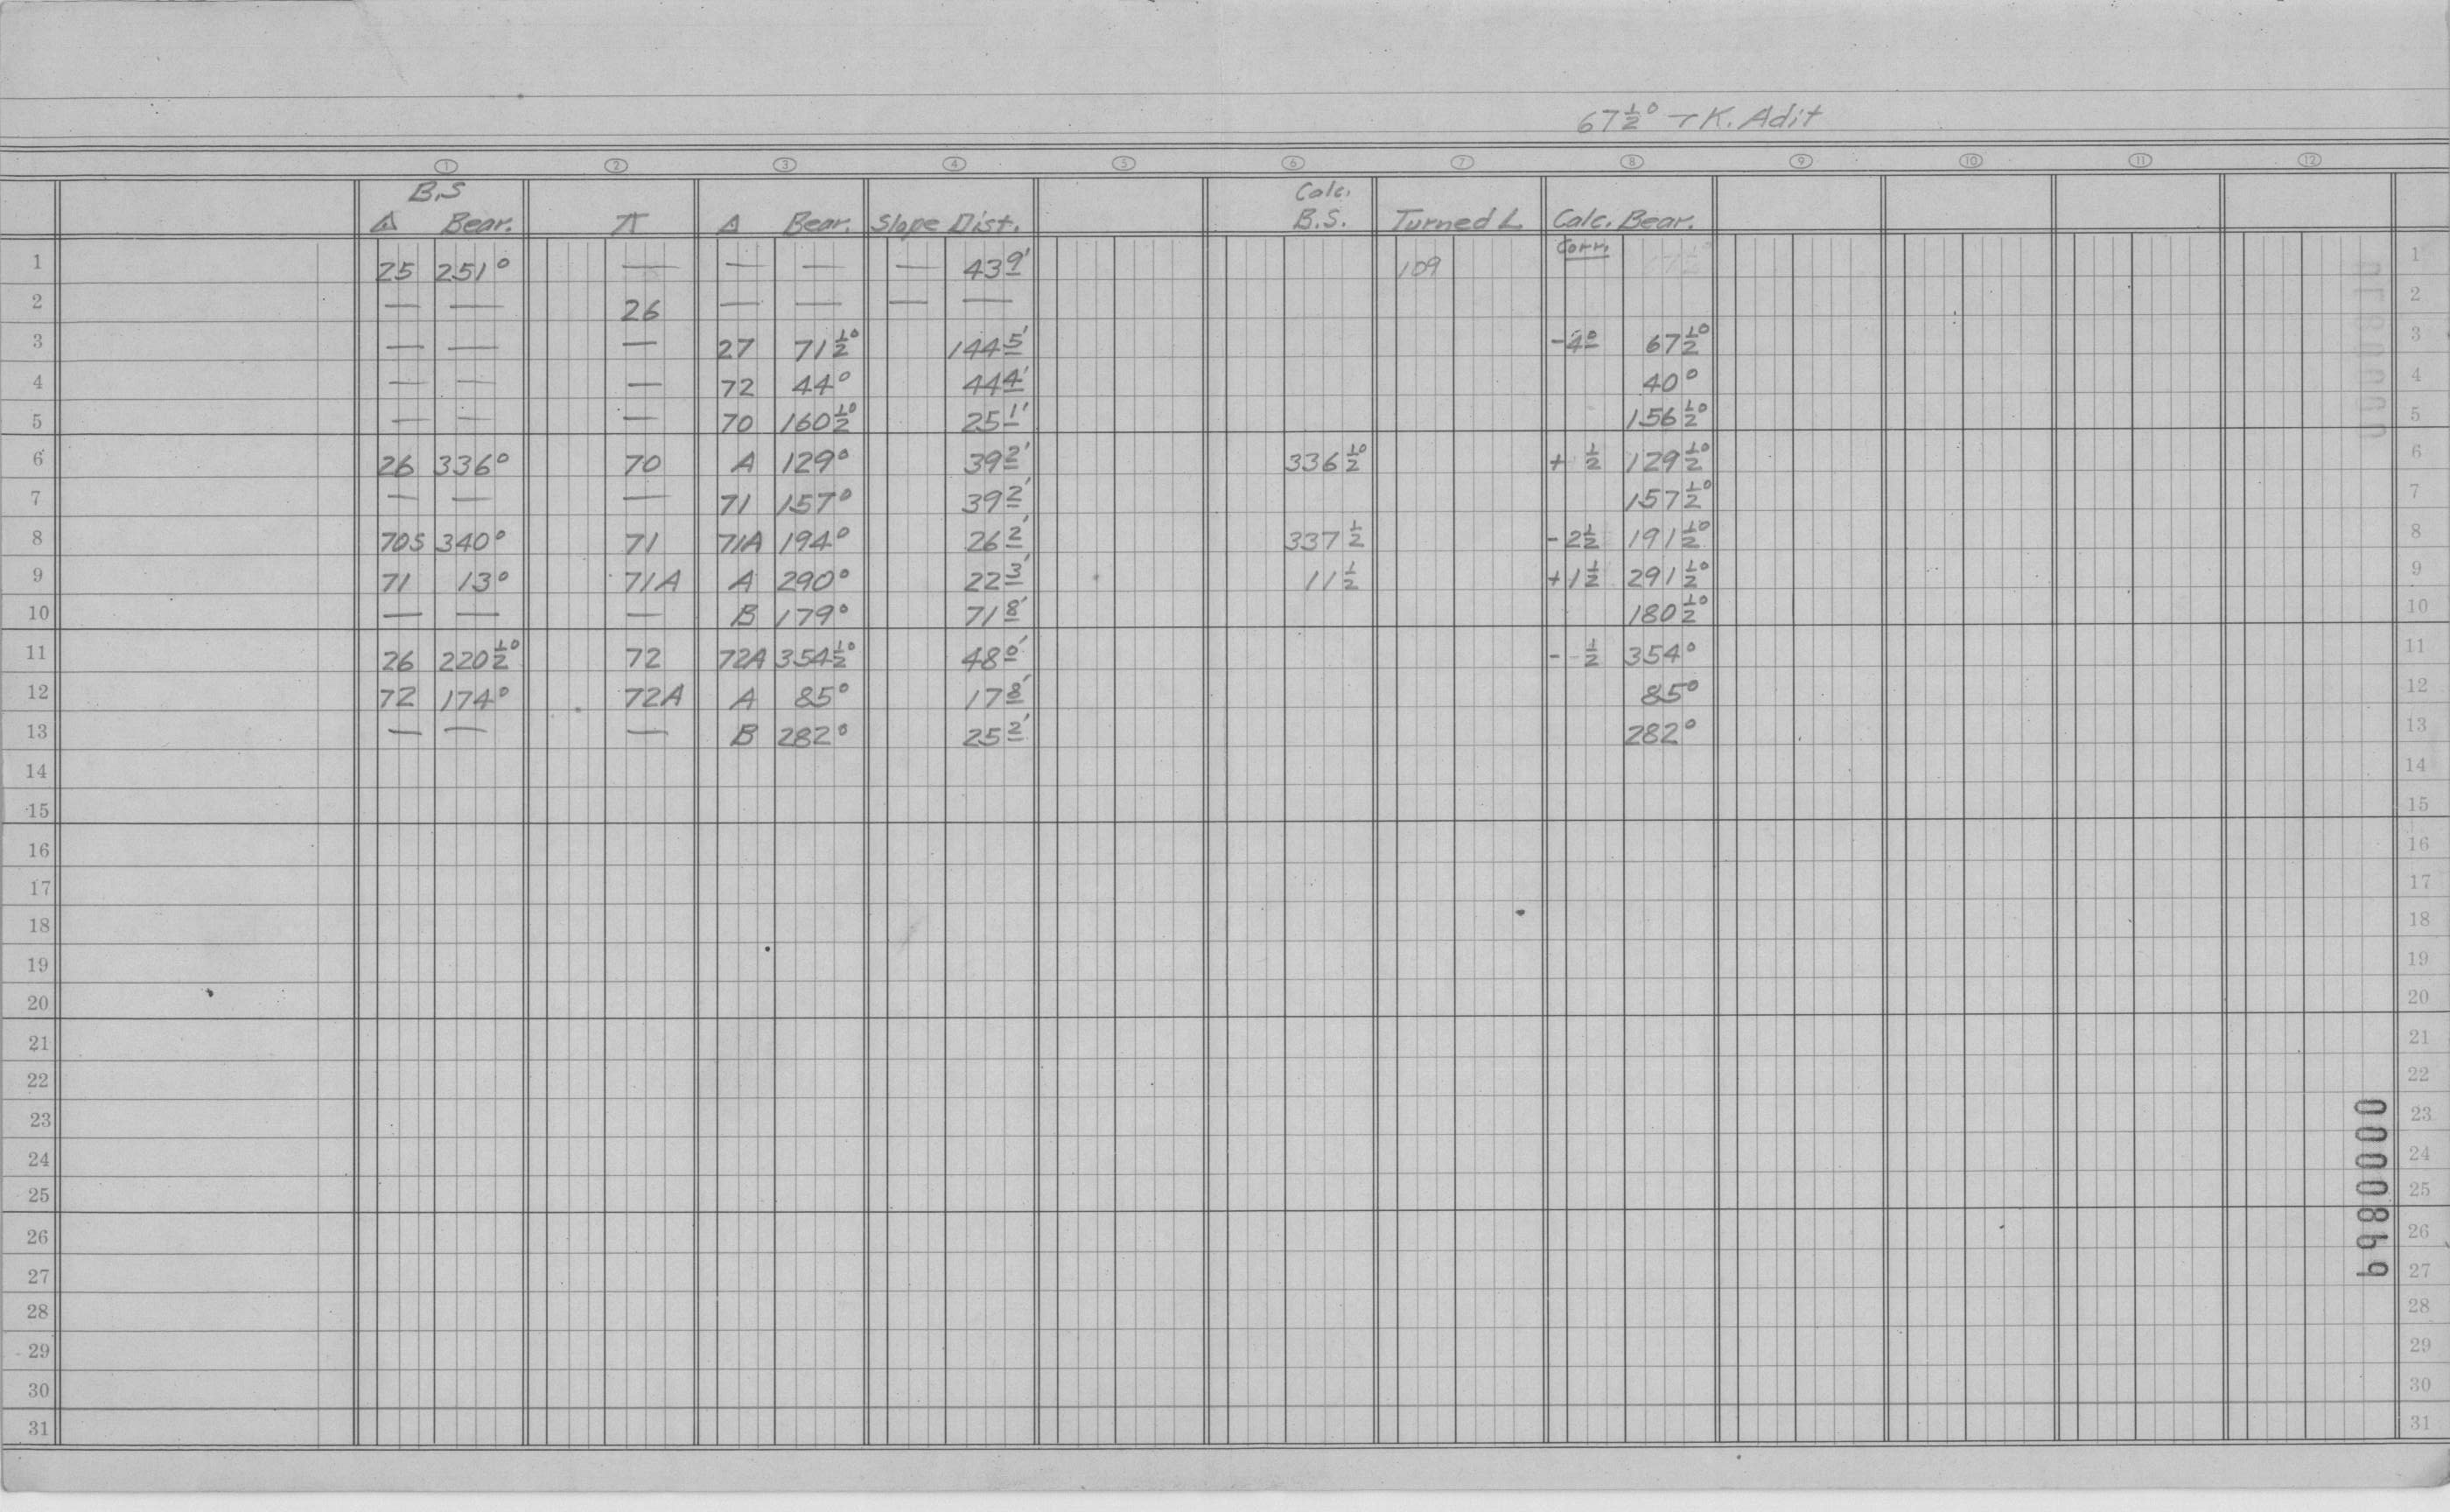 67½° K. Adit
1 2 3 4 5 6 7 8 9 10 11 12
B.S Calc.
△ Bear. ⊼ △ Bear. Slope Dist. B.S. Turned ∠ Calc. Bear.
Corr.
1 25 251° — — — — 43 9' 109 1
2 — — 26 — — — — 2
3 — — — 27 71½° 144 5' -4° 67½° 3
4 — — — 72 44° 44 4' 40° 4
5 — — — 70 160½° 25 1' 156½° 5
6 26 336° 70 A 129° 39 2' 336½° + ½ 129½° 6
7 — — — 71 157° 39 2' 157½° 7
8 70S 340° 71 71A 194° 26 2' 337½ -2½ 191½° 8
9 71 13° 71A A 290° 22 3' 11½ +1½ 291½° 9
10 — — — B 179° 71 8' 180½° 10
11 26 220½° 72 72A 354½° 48 0' - ½ 354° 11
12 72 174° 72A A 85° 17 8' 85° 12
13 — — — B 282° 25 2' 282° 13
14 14
15 15
16 16
17 17
18 18
19 19
20 20
21 21
22 22
23 23
24 24
25 25
26 26
27 27
28 28
29 29
30 30
31 31
0000869